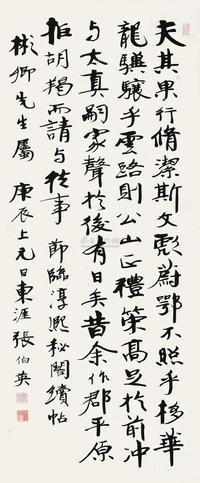 夫其果行脩潔斯文彪蔚鄂不照乎移華
龍驥驤乎雲路則公山正禮策高足於前冲
与太真嗣家聲於後有日矣昔余作郡平原
拒胡羯而請与從事 節臨淳熙秘閣續帖
彬卿先生屬 庚辰上元日東涯張伯英